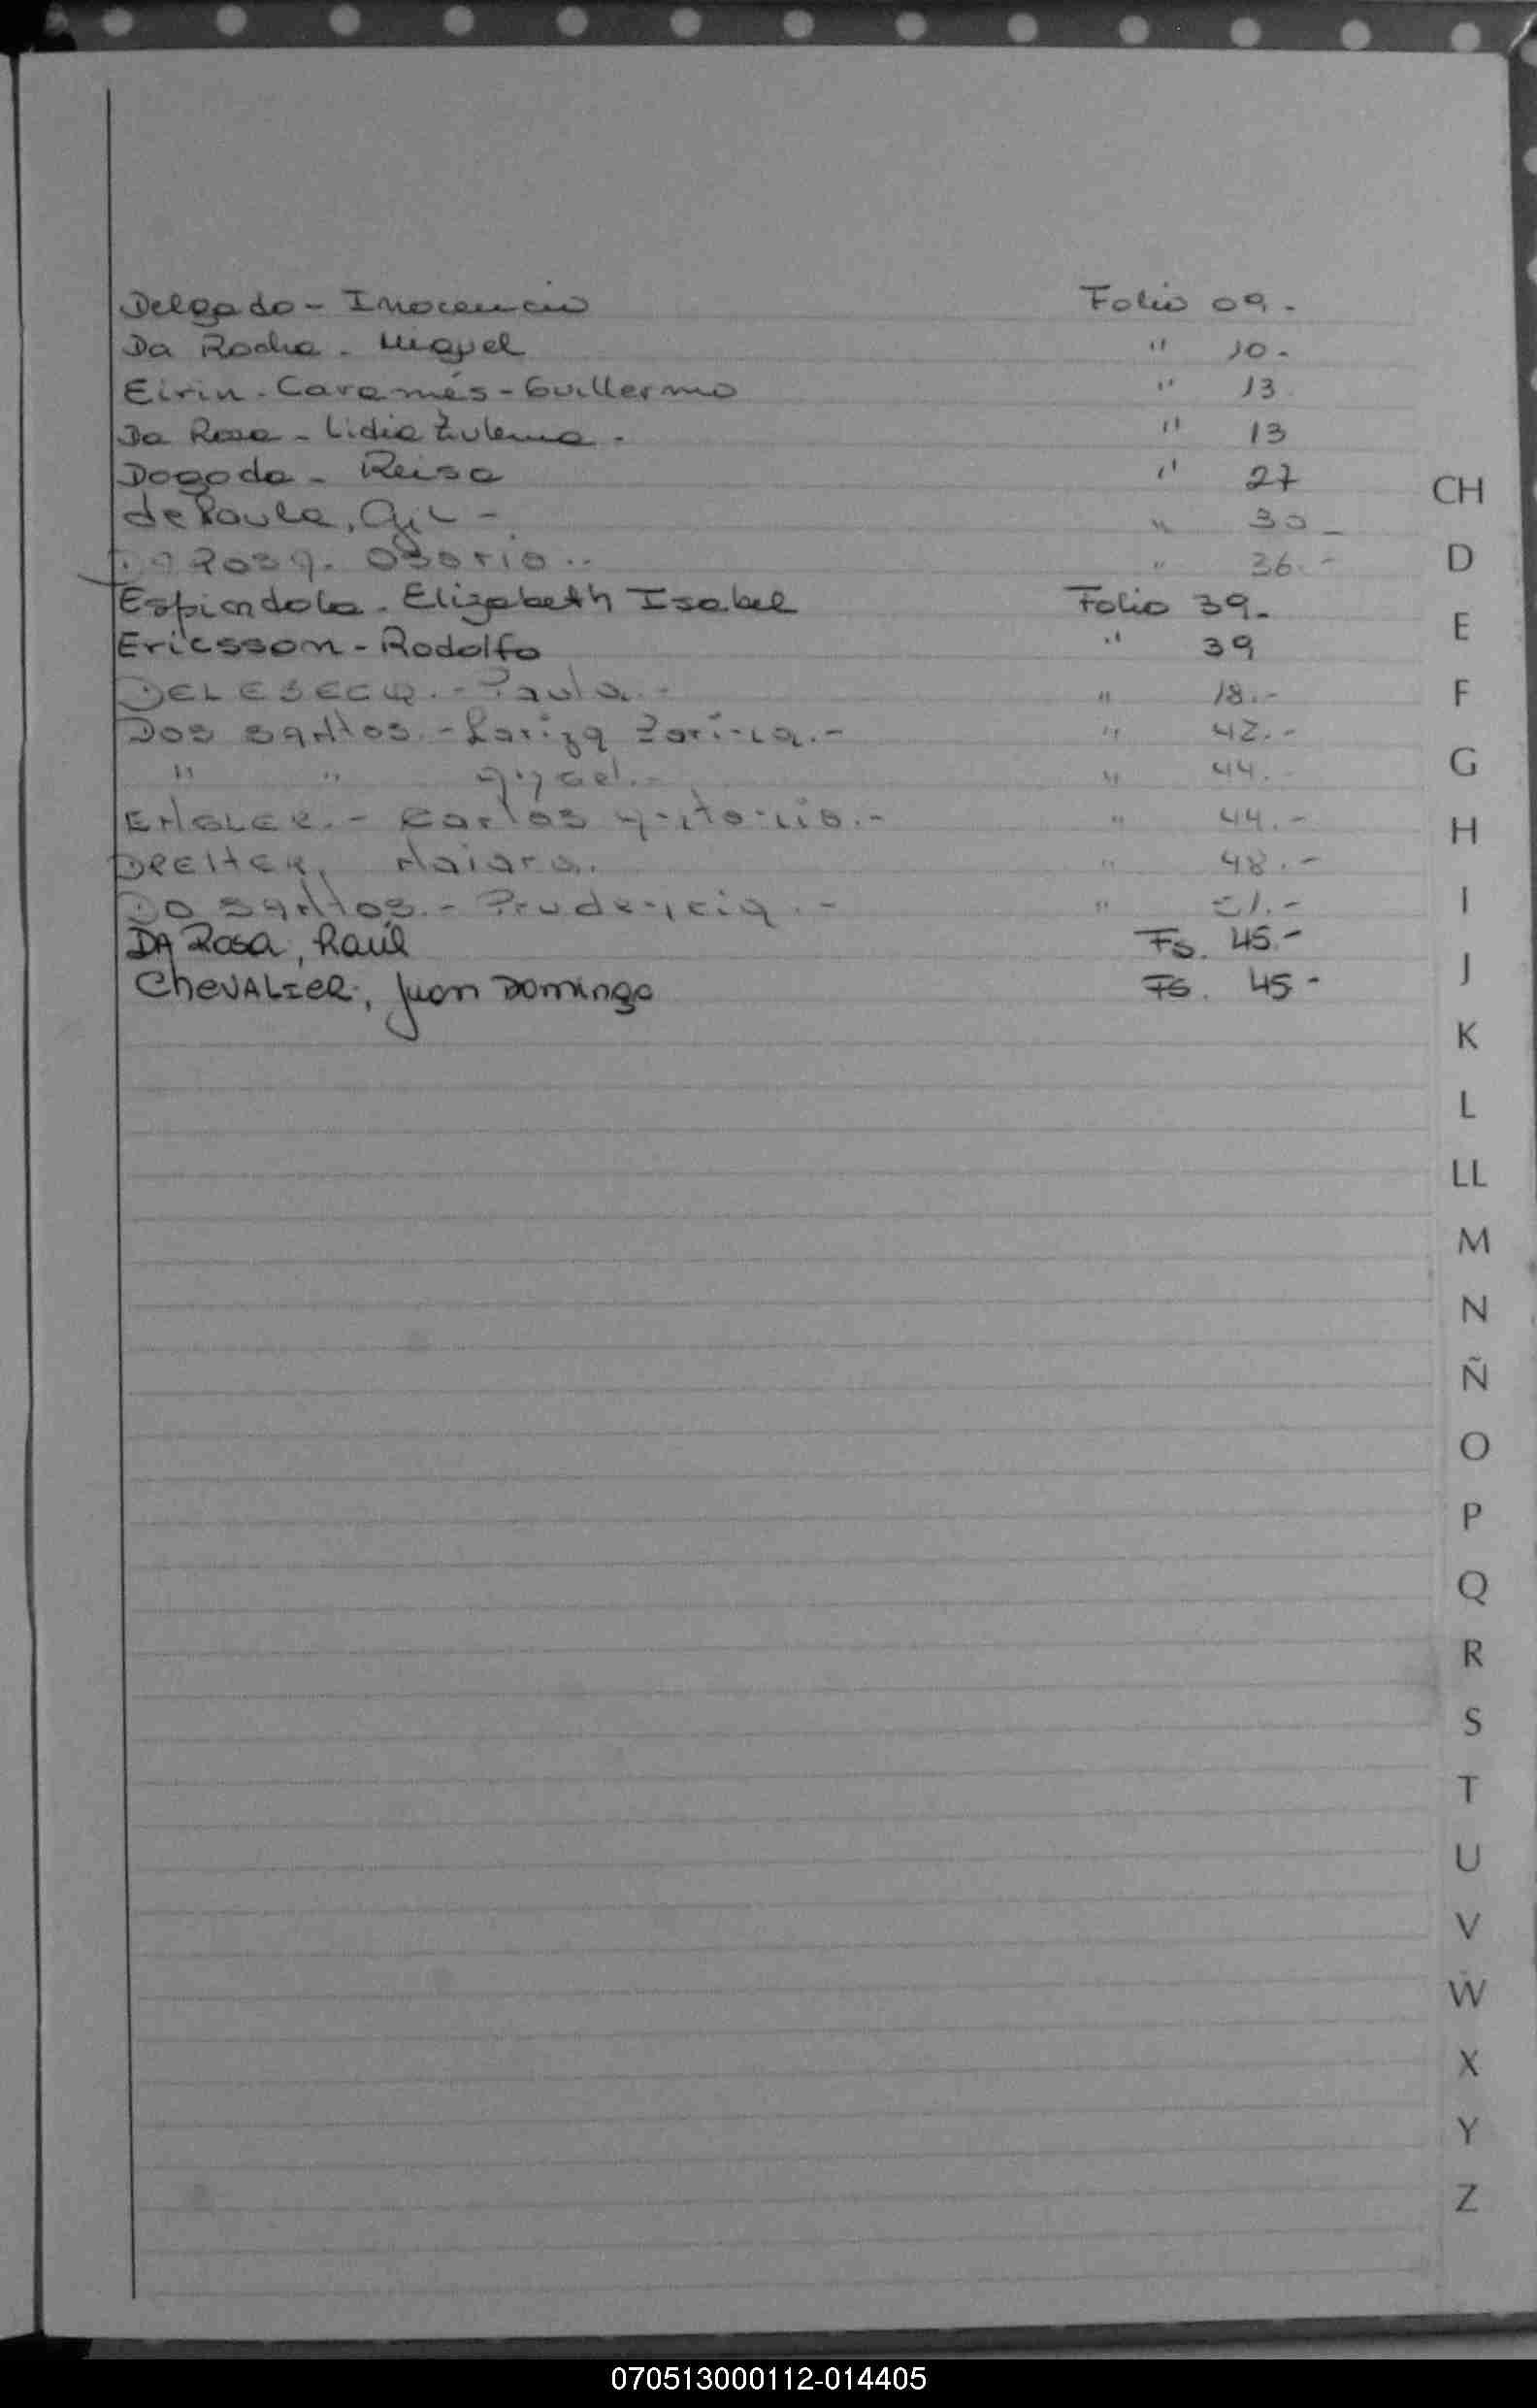 Delgado - Inocencio Folio 09.-
Da Rocha - Miguel " 10.-
Eirin - Caramés - Guillermo " 13
Da Rosa - Lidia Zulema. " 13
Dogoda - Reisa " 27
de Paula, Gil - " 30 -
Da Rosa. Osorio.. " 36.-
Espindola - Elizabeth Isabel Folio 39.-
Ericsson - Rodolfo " 39
DELESECQ.- Paula.- " 18.-
Dos santos.- " 42.-
" " " 44.-
ENGLER.- Carlos Antonio.- " 44.-
Naiara. " 48.-
Do santos.- Prudencia.- "
DA Rosa, Raúl Fs. 45.-
CheVALIER, Juan Domingo Fs. 45-
CH
D
E
F
G
H
I
J
K
L
LL
M
N
Ñ
O
P
Q
R
S
T
U
V
W
X
Y
Z
070513000112-014405